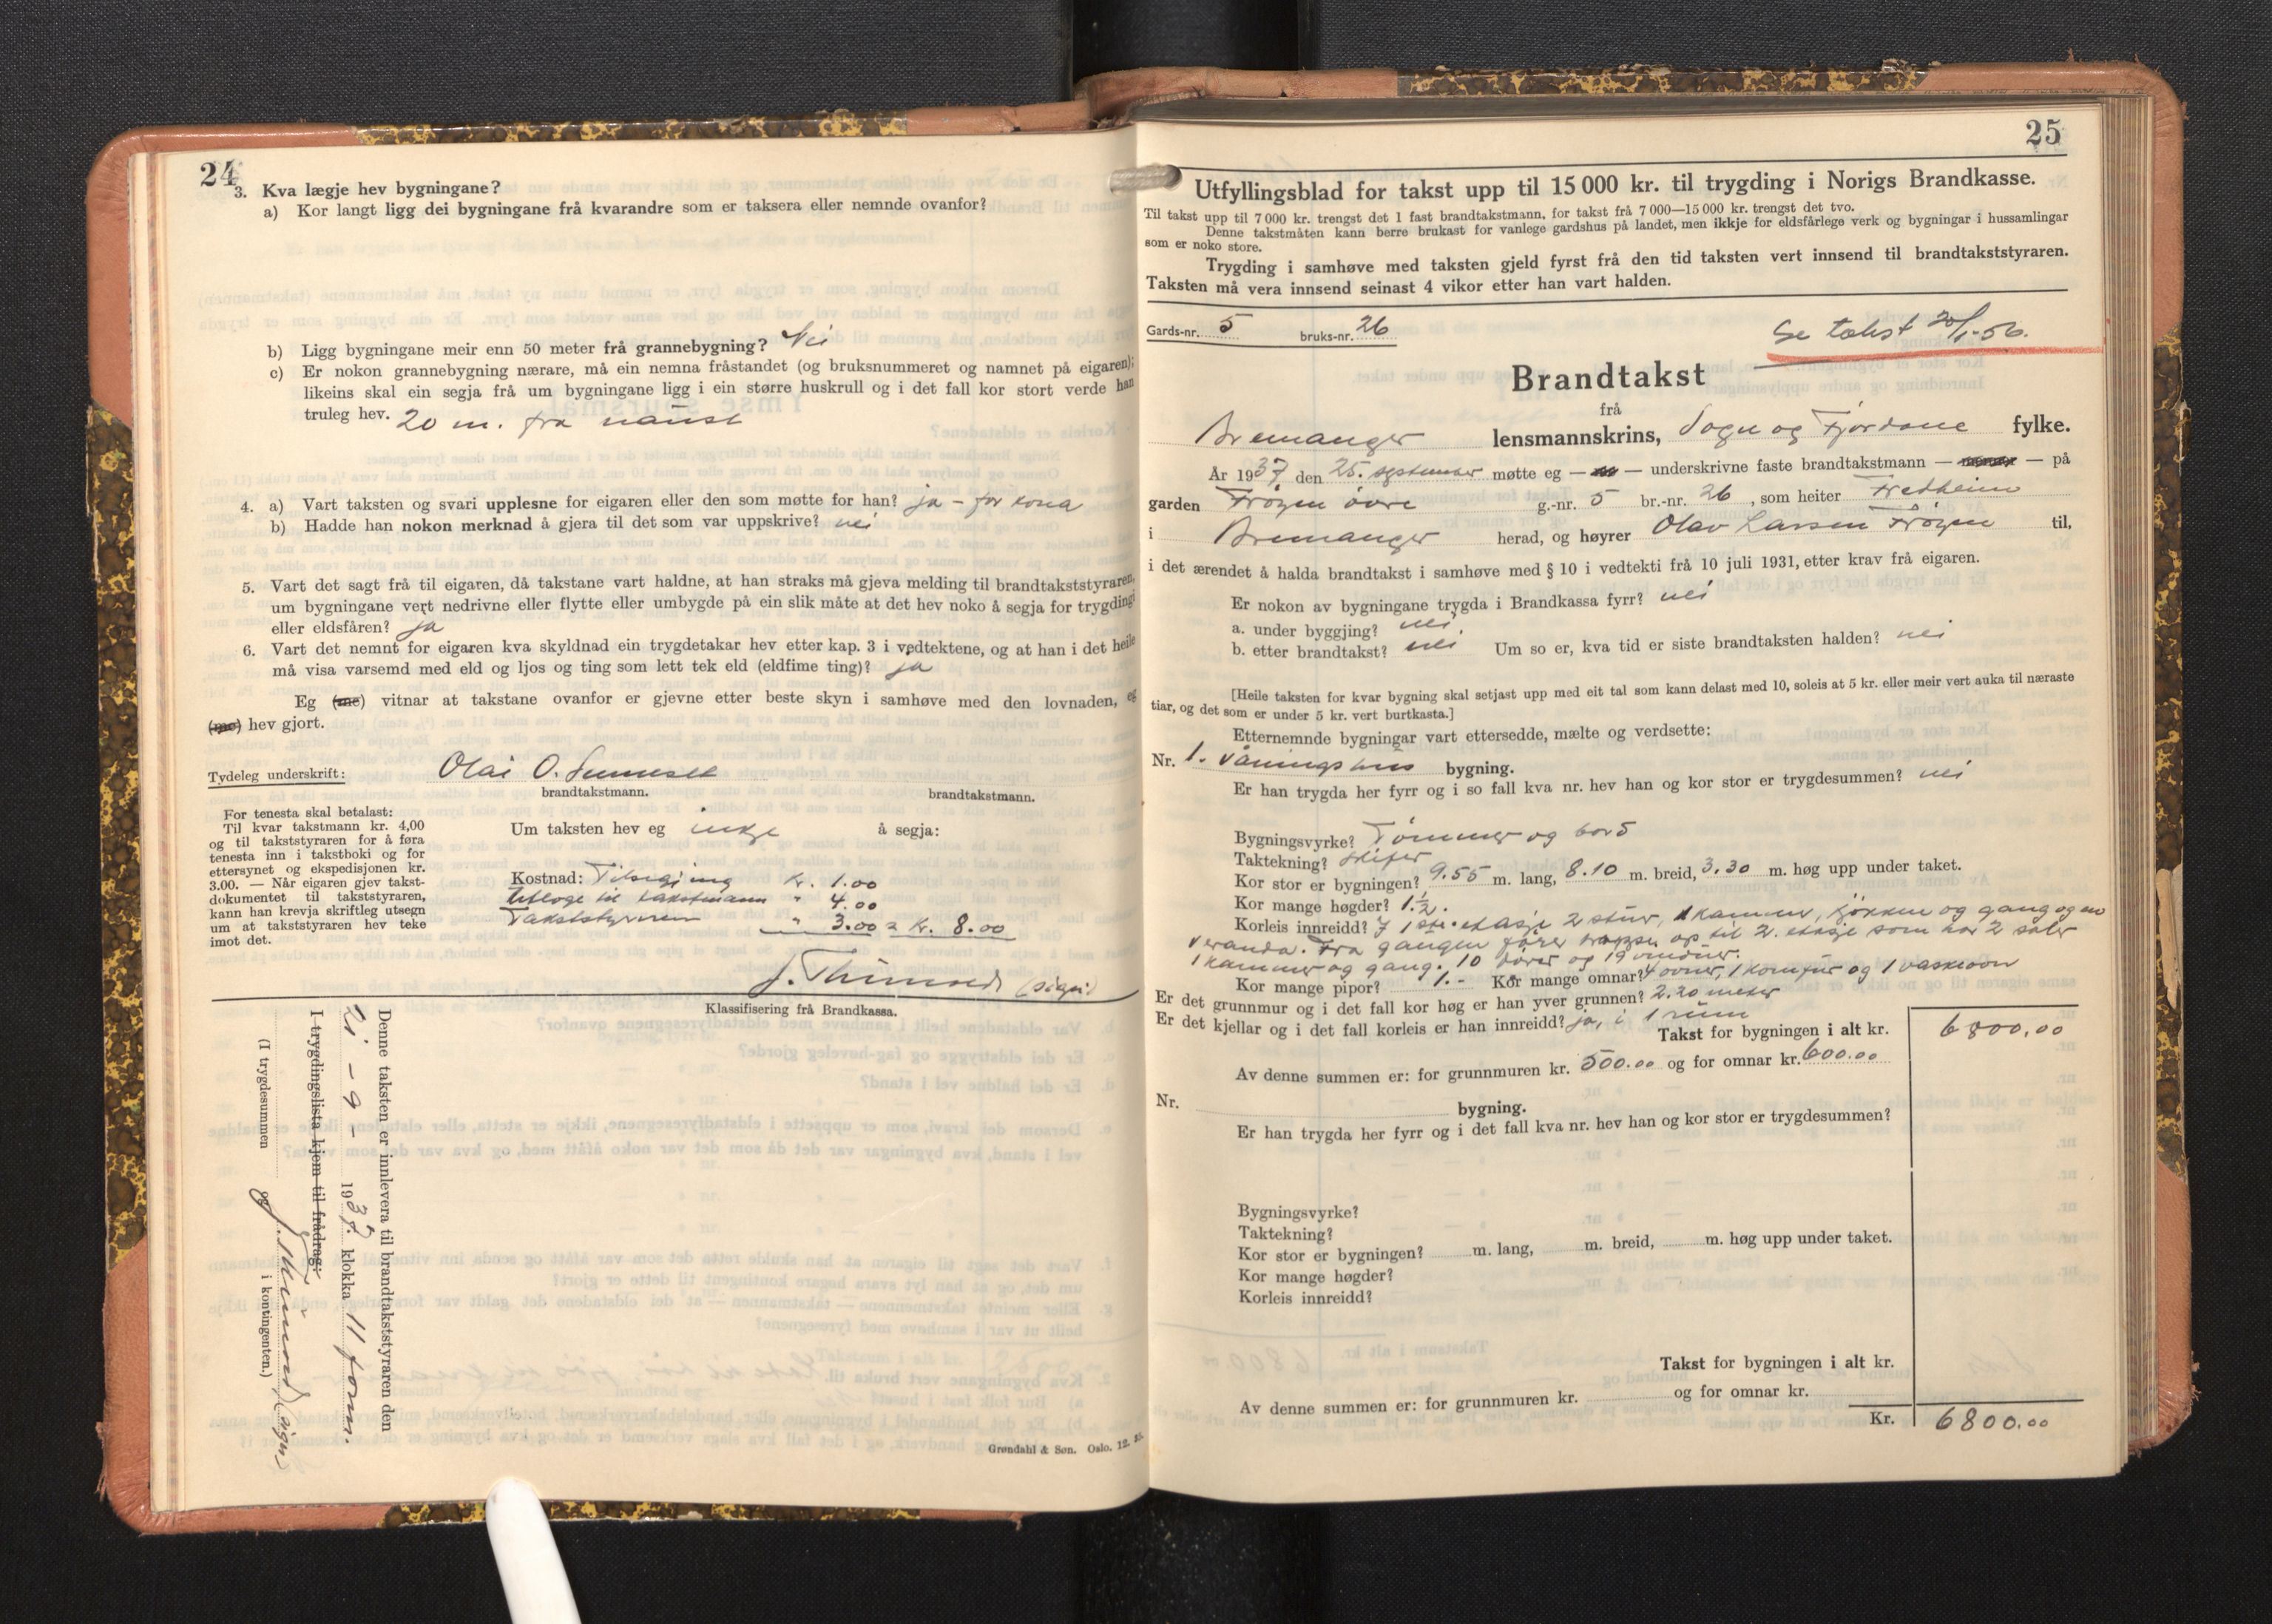 24
3. Kva lægje hev bygningane?
a) Kor langt ligg dei bygningane frå kvarandre som er taksera eller nemnde ovanfor?
b) Ligg bygningane meir enn 50 meter frå grannebygning? Nei
c) Er nokon grannebygning nærare, må ein nemna fråstandet (og bruksnummeret og namnet på eigaren);
likeins skal ein segja frå um bygningane ligg i ein større huskrull og i det fall kor stort verde han
truleg hev. 20 m. fra naust
4. a) Vart taksten og svari upplesne for eigaren eller den som møtte for han? ja - for kona
b) Hadde han nokon merknad å gjera til det som var uppskrive? nei
5. Vart det sagt frå til eigaren, då takstane vart haldne, at han straks må gjeva melding til brandtakststyraren,
um bygningane vert nedrivne eller flytte eller umbygde på ein slik måte at det hev noko å segja for trygdingi
eller eldsfåren? ja
6. Vart det nemnt for eigaren kva skyldnad ein trygdetakar hev etter kap. 3 i vedtektene, og at han i det heile
må visa varsemd med eld og ljos og ting som lett tek eld (eldfime ting)? ja
Eg (me) vitnar at takstane ovanfor er gjevne etter beste skyn i samhøve med den lovnaden, eg
(me) hev gjort.
Tydeleg underskrift: Olai O.
brandtakstmann. brandtakstmann.
For tenesta skal betalast:
Til kvar takstmann kr. 4,00
og til takststyraren for å føra
tenesta inn i takstboki og for
ettersynet og ekspedisjonen kr.
3.00. — Når eigaren gjev takst-
dokumentet til takststyraren,
kann han krevja skriftleg utsegn
um at takststyraren hev teke
imot det.
Um taksten hev eg inkje å segja:
Kostnad: Tilsigjing kr. 1.00
Utlegg til takstmann " 4.00
Takststyraren " 3.00 = kr. 8.00
(sign)
Klassifisering frå Brandkassa.
Denne taksten er innlevera til brandtakststyraren den
21 - 9 - 1937. klokka 11 form.
I trygdingslista kjem til frådrag:
(I trygdesummen og i kontingenten.)
(sign)
Grøndahl & Søn. Oslo. 12. 35.
25
Utfyllingsblad for takst upp til 15 000 kr. til trygding i Norigs Brandkasse.
Til takst upp til 7 000 kr. trengst det 1 fast brandtakstmann, for takst frå 7 000—15 000 kr. trengst det tvo.
Denne takstmåten kann berre brukast for vanlege gardshus på landet, men ikkje for eldsfårlege verk og bygningar i hussamlingar
som er noko store.
Trygding i samhøve med taksten gjeld fyrst frå den tid taksten vert innsend til brandtakststyraren.
Taksten må vera innsend seinast 4 vikor etter han vart halden.
Gards-nr. 5 bruks-nr. 26
Se takst 20/1-56.
Brandtakst
frå
Bremanger lensmannskrins, Sogn og Fjordane fylke.
År 1937 den 25. september møtte eg — — underskrivne faste brandtakstmann — — på
garden Frøyen øvre g.-nr. 5 br.-nr. 26, som heiter Fredheim
i Bremanger herad, og høyrer Olav Larsen Frøyen til,
i det ærendet å halda brandtakst i samhøve med § 10 i vedtekti frå 10 juli 1931, etter krav frå eigaren.
Er nokon av bygningane trygda i Brandkassa fyrr? nei
a. under byggjing? nei
b. etter brandtakst? nei Um so er, kva tid er siste brandtaksten halden? nei
[Heile taksten for kvar bygning skal setjast upp med eit tal som kann delast med 10, soleis at 5 kr. eller meir vert auka til næraste
tiar, og det som er under 5 kr. vert burtkasta.]
Etternemnde bygningar vart ettersedde, mælte og verdsette:
Nr. 1. våningshus bygning.
Er han trygda her fyrr og i so fall kva nr. hev han og kor stor er trygdesummen? nei
Bygningsvyrke? Tømmer og bord
Taktekning? skifer
Kor stor er bygningen? 9.55 m. lang, 8.10 m. breid, 3.30 m. høg upp under taket.
Kor mange høgder? 1.½.
Korleis innreidd? I 1ste. etasje 2 stuer, 1 kammer, kjøkken og gang og en
veranda. Fra gangen fører trappe op til 2. etasje som har 2 saler
1 kammer og gang. 10 dører og 19 vinduer.
Kor mange pipor? 1.- Kor mange omnar? 4 ovner, 1 komfur og 1 vaskeovn
Er det grunnmur og i det fall kor høg er han yver grunnen? 2.20 meter
Er det kjellar og i det fall korleis er han innreidd? ja, i 1 rum
Takst for bygningen i alt kr. 6800,00
Av denne summen er: for grunnmuren kr. 500.00 og for omnar kr. 600.00
Nr. bygning.
Er han trygda her fyrr og i det fall kva nr. hev han og kor stor er trygdesummen?
Bygningsvyrke?
Taktekning?
Kor stor er bygningen? m. lang, m. breid, m. høg upp under taket.
Kor mange høgder?
Korleis innreidd?
Takst for bygningen i alt kr.
Av denne summen er: for grunnmuren kr. og for omnar kr.
Kr. 6800.00